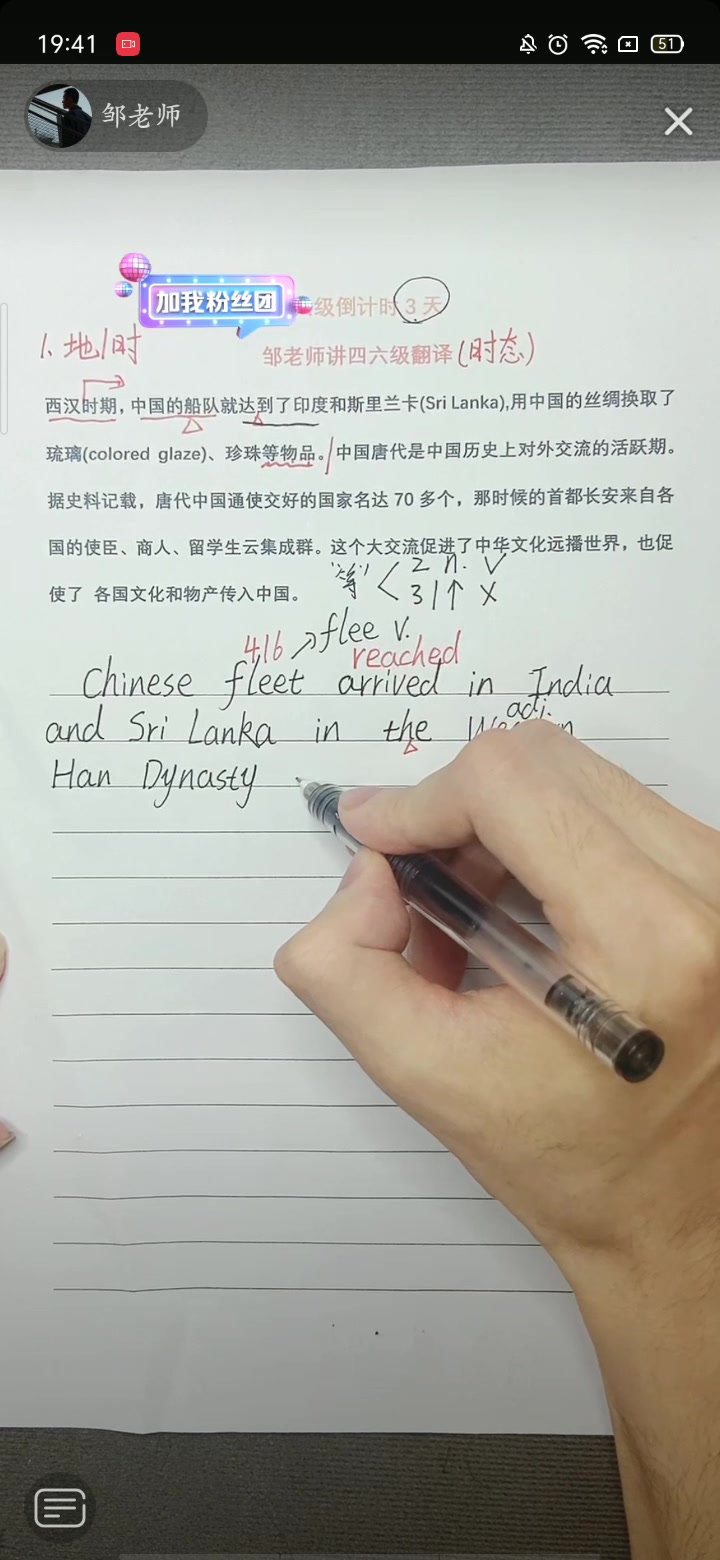 19:41
51
邹老师
加我粉丝团
级倒计时 3 天
1. 地/时
邹老师讲四六级翻译(时态)
西汉时期,中国的船队就达到了印度和斯里兰卡(Sri Lanka),用中国的丝绸换取了
琉璃(colored glaze)、珍珠等物品。/中国唐代是中国历史上对外交流的活跃期。
据史料记载，唐代中国通使交好的国家名达 70 多个，那时候的首都长安来自各
国的使臣、商人、留学生云集成群。这个大交流促进了中华文化远播世界，也促
使了 各国文化和物产传入中国。
"等" < 2 n. √
3 1↑ ×
416 ↗ flee v.
reached
Chinese fleet arrived in India
adj.
and Sri Lanka in the
Han Dynasty